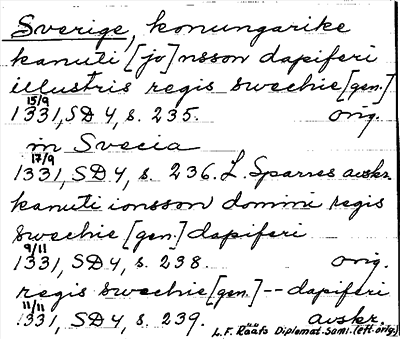 Sverige, konungarike
kanuti [jo]nsson dapiferi
illustris regis swechie [gen.]
15/9
1331, SD 4, s. 235. orig.
in Svecia
17/9
1331, SD 4, s. 236. L. Sparres avskr.
kanuti ionsson domini regis
swechie [gen.] dapiferi
9/11
1331, SD 4, s. 238. orig.
regis swechie [gen.] -- dapiferi
11/11
1331, SD 4, s. 239. avskr.
L. F. Rääfs Diplomat. Saml. (ett. orig.)